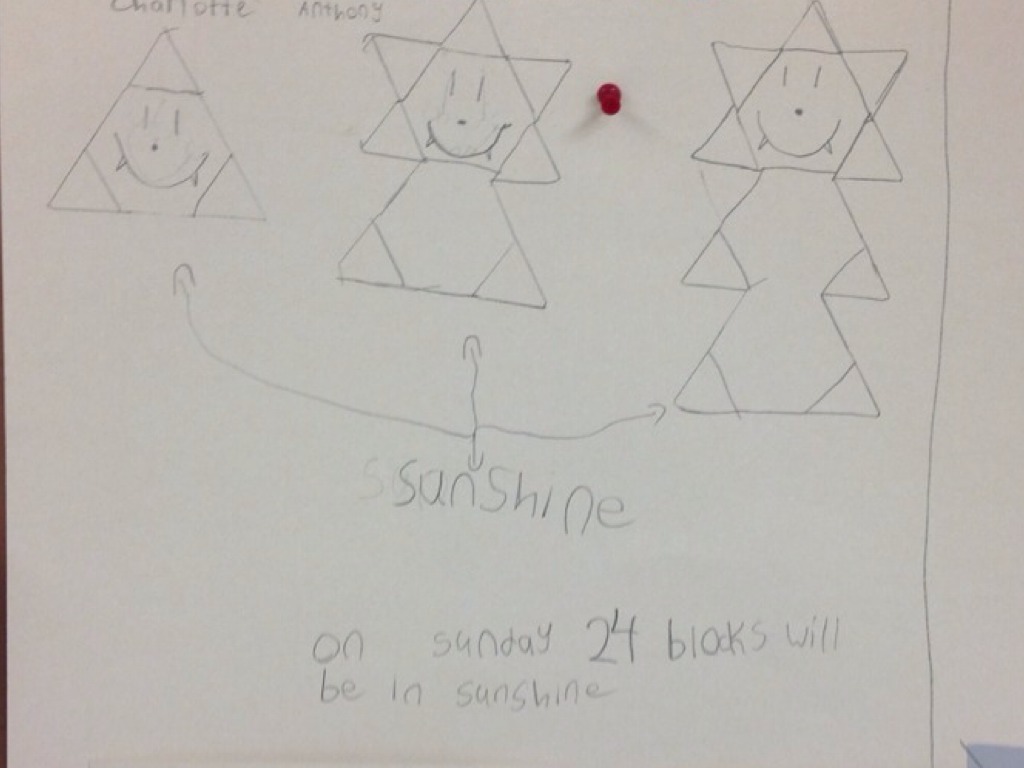 Charlotte Anthony
Sunshine
on sunday 24 blocks will
be in sunshine